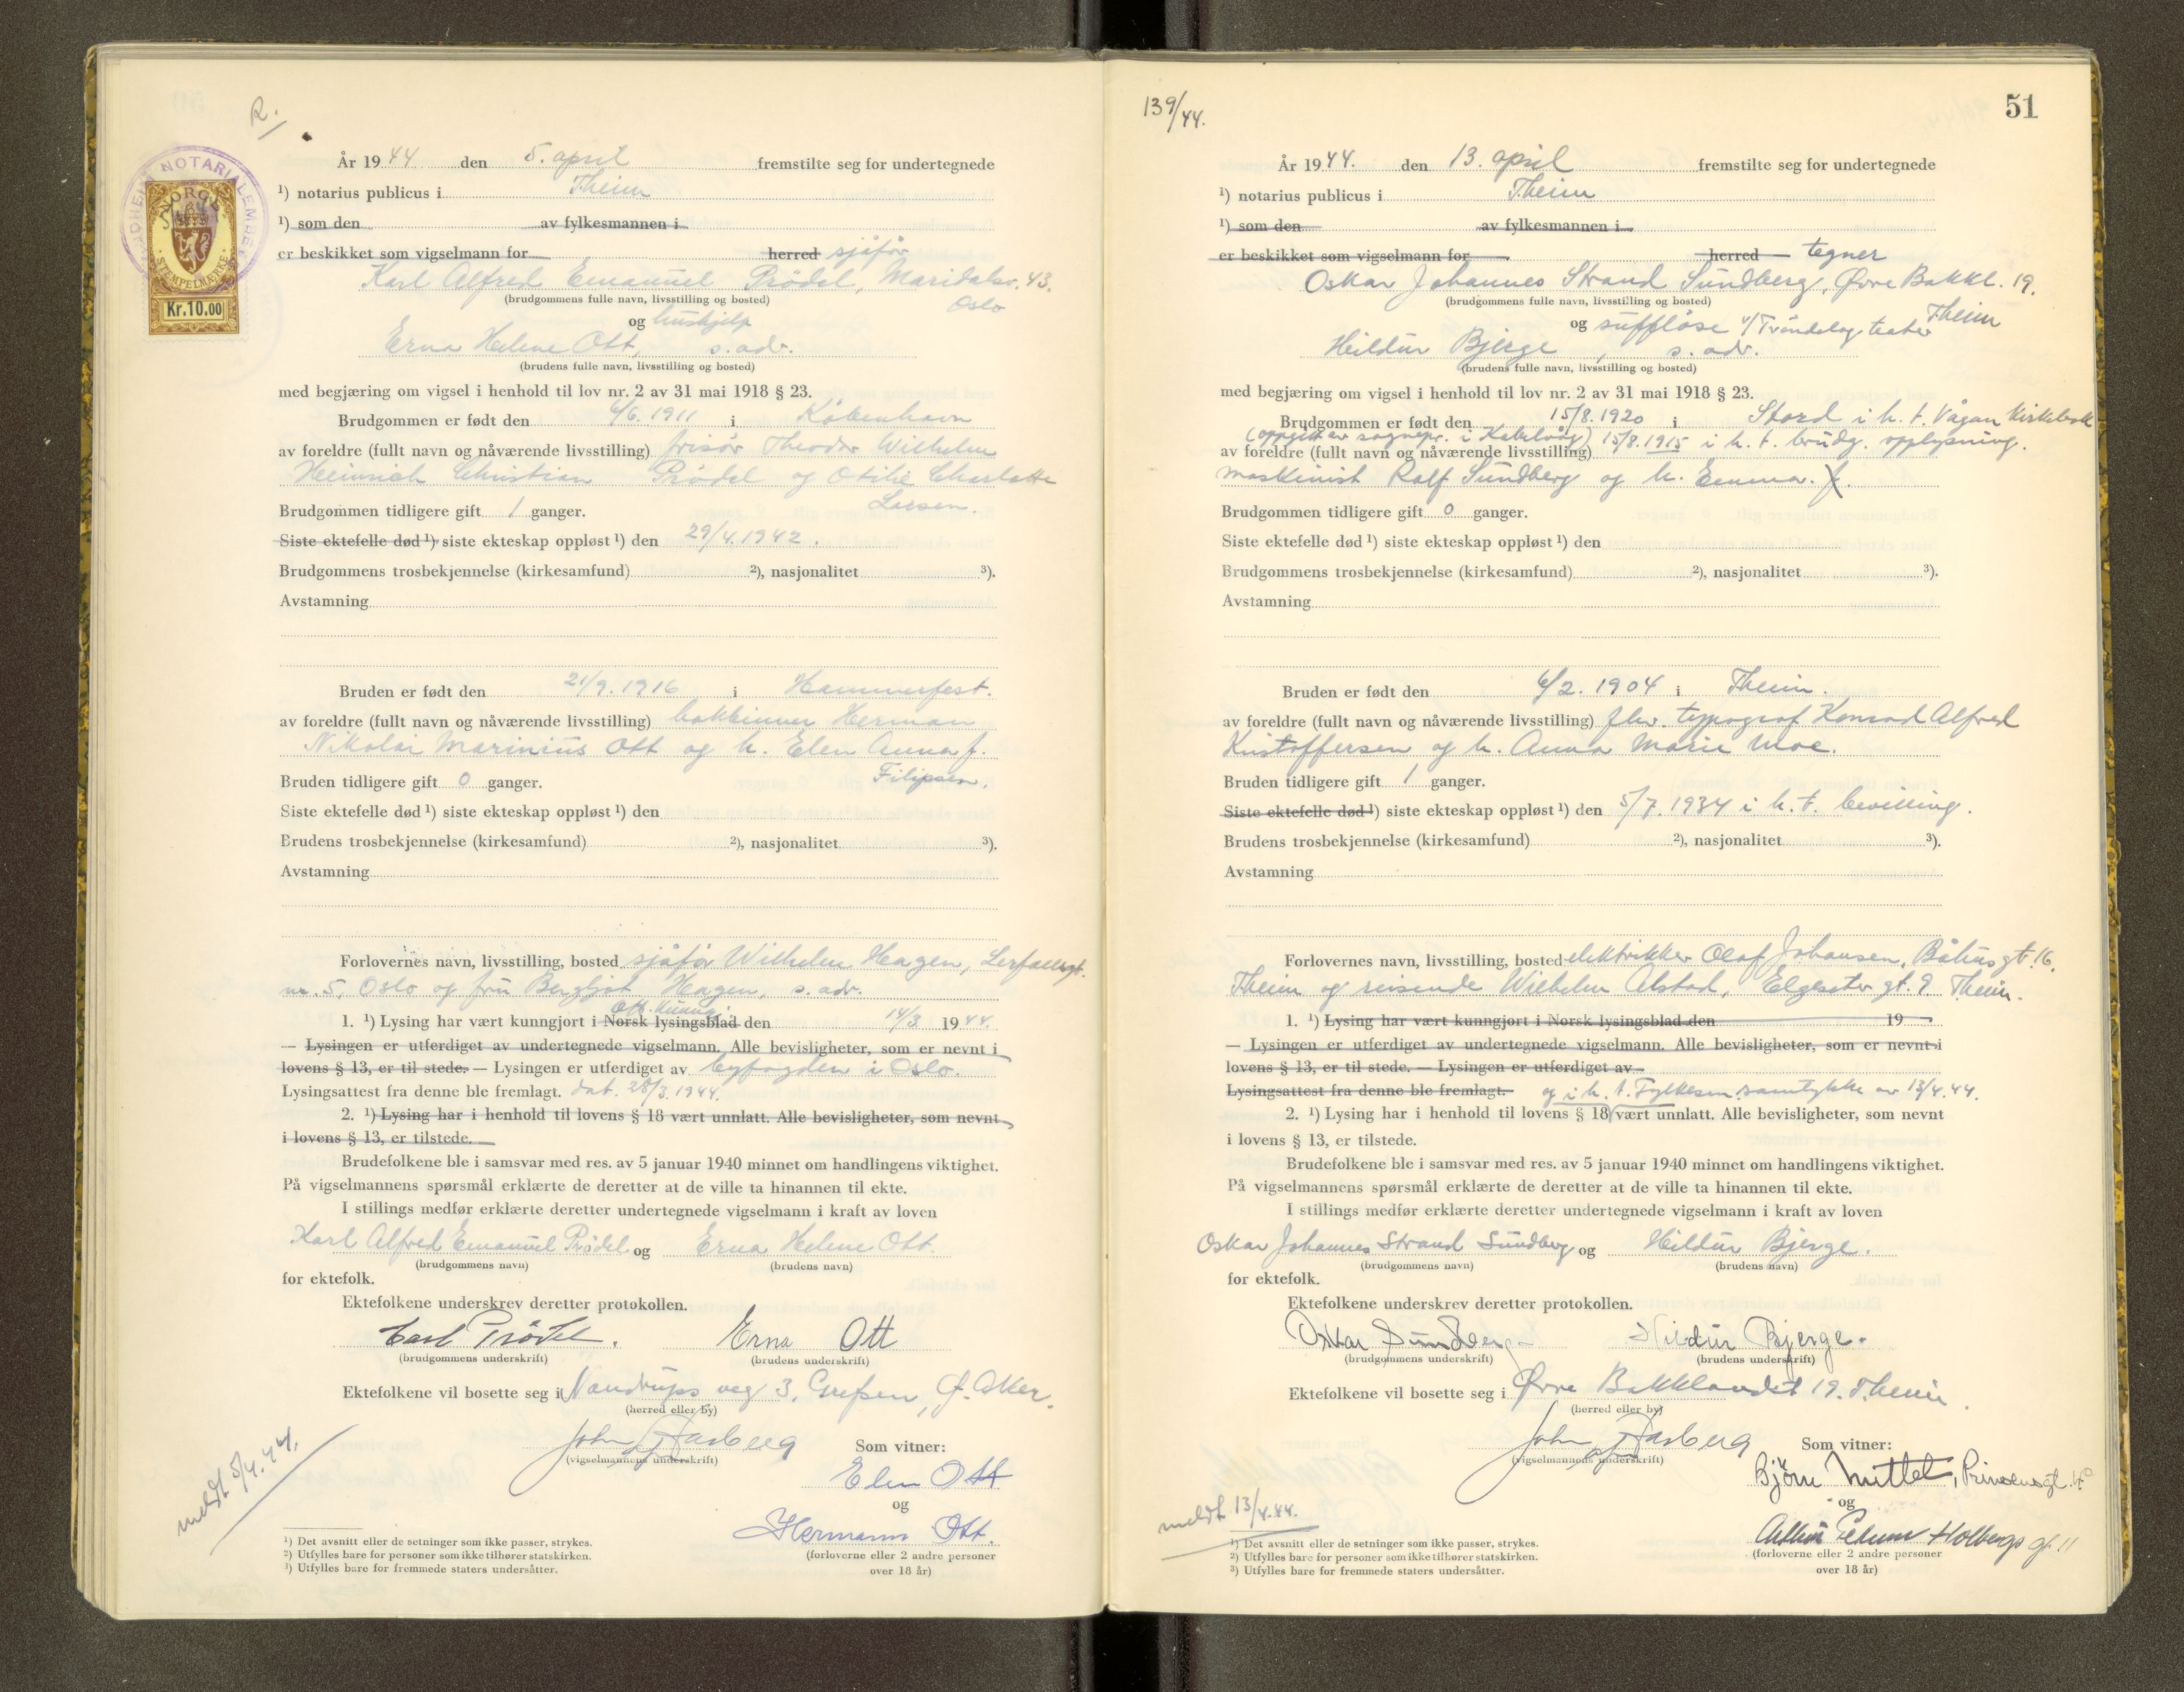 R.
NOTARIALEMBE
NORGE
STEMPELMERKE
Kr.10.00
År 1944 den 5. april fremstilte seg for undertegnede
¹) notarius publicus i Theim
¹) som den av fylkesmannen i
er beskikket som vigselmann for herred sjåfør
Karl Alfred Emanuel Prödel, Maridalsv. 43.
Oslo
(brudgommens fulle navn, livsstilling og bosted)
og hushjelp
Erna Helene Ott, s. adr.
(brudens fulle navn, livsstilling og bosted)
med begjæring om vigsel i henhold til lov nr. 2 av 31 mai 1918 § 23.
Brudgommen er født den 6/6. 1911 i København
av foreldre (fullt navn og nåværende livsstilling) frisør Theodor Wilhelm
Heinrich Christian Prödel og Otilie Charlotte
Larsen.
Brudgommen tidligere gift 1 ganger.
Siste ektefelle død ¹) siste ekteskap oppløst ¹) den 29/4. 1942.
Brudgommens trosbekjennelse (kirkesamfund) ²), nasjonalitet ³).
Avstamning
Bruden er født den 21/9. 1916 i Hammerfest.
av foreldre (fullt navn og nåværende livsstilling) Herman
Nikolai Marinius Ott og h. Elen Anna f.
Filipsen.
Bruden tidligere gift 0 ganger.
Siste ektefelle død ¹) siste ekteskap oppløst ¹) den
Brudens trosbekjennelse (kirkesamfund) ²), nasjonalitet ³).
Avstamning
Forlovernes navn, livsstilling, bosted sjåfør Wilhelm Hagen,
nr. 5, Oslo og fru Bergljot Hagen, s. adr.
Off. kunngj.
1. ¹) Lysing har vært kunngjort i Norsk lysingsblad den 14/3 1944.
— Lysingen er utferdiget av undertegnede vigselmann. Alle bevisligheter, som er nevnt i
lovens § 13, er til stede. — Lysingen er utferdiget av byfogden i Oslo.
Lysingsattest fra denne ble fremlagt. dat. 28/3. 1944.
2. ¹) Lysing har i henhold til lovens § 18 vært unnlatt. Alle bevisligheter, som nevnt
i lovens § 13, er tilstede.
Brudefolkene ble i samsvar med res. av 5 januar 1940 minnet om handlingens viktighet.
På vigselmannens spørsmål erklærte de deretter at de ville ta hinannen til ekte.
I stillings medfør erklærte deretter undertegnede vigselmann i kraft av loven
Karl Alfred Emanuel Prödel og Erna Helene Ott.
(brudgommens navn) (brudens navn)
for ektefolk.
Ektefolkene underskrev deretter protokollen.
Carl Prödel. Erna Ott
(brudgommens underskrift) (brudens underskrift)
Ektefolkene vil bosette seg i Nandrups veg 3, Grefsen, Ø. Aker.
(herred eller by)
John Aasberg Som vitner:
(vigselmannens underskrift)
Elen Ott
og
Hermann Ott.
(forloverne eller 2 andre personer
over 18 år)
meldt 5/4. 44.
¹) Det avsnitt eller de setninger som ikke passer, strykes.
²) Utfylles bare for personer som ikke tilhører statskirken.
³) Utfylles bare for fremmede staters undersåtter.
139/44.
51
År 1944. den 13. april fremstilte seg for undertegnede
¹) notarius publicus i Theim
¹) som den av fylkesmannen i
er beskikket som vigselmann for herred tegner
Oskar Johannes Strand Sundberg, Øvre Bakkl. 19.
(brudgommens fulle navn, livsstilling og bosted) Theim
og sufflöse v/Tröndelag teater
Hildur Bjerge, s. adr.
(brudens fulle navn, livsstilling og bosted)
med begjæring om vigsel i henhold til lov nr. 2 av 31 mai 1918 § 23.
Brudgommen er født den 15/8. 1920 i Stord i h. t. Vågan Kirkebok
(oppgitt av sognepr. i Kabelvåg) 15/8. 1915 i h. t. brudg. opplysning.
av foreldre (fullt navn og nåværende livsstilling)
maskinist Ralf Sundberg og h. Emma. f.
Brudgommen tidligere gift 0 ganger.
Siste ektefelle død ¹) siste ekteskap oppløst ¹) den
Brudgommens trosbekjennelse (kirkesamfund) ²), nasjonalitet ³).
Avstamning
Bruden er født den 6/2. 1904 i Theim.
av foreldre (fullt navn og nåværende livsstilling) fhv. typograf Konrad Alfred
Kristoffersen og h. Anna Marie Moe.
Bruden tidligere gift 1 ganger.
Siste ektefelle død ¹) siste ekteskap oppløst ¹) den 5/7. 1934 i h. t. bevilling.
Brudens trosbekjennelse (kirkesamfund) ²), nasjonalitet ³).
Avstamning
Forlovernes navn, livsstilling, bosted elektrikker Olaf Johansen, Båhusgt. 16,
Theim og reisende Wilhelm Alstad, Elgeseter gt. 9 Theim.
1. ¹) Lysing har vært kunngjort i Norsk lysingsblad den 19
— Lysingen er utferdiget av undertegnede vigselmann. Alle bevisligheter, som er nevnt i
lovens § 13, er til stede. — Lysingen er utferdiget av
Lysingsattest fra denne ble fremlagt. og i h. t. Fylkesm. samtykke av 13/4. 44.
2. ¹) Lysing har i henhold til lovens § 18 vært unnlatt. Alle bevisligheter, som nevnt
i lovens § 13, er tilstede.
Brudefolkene ble i samsvar med res. av 5 januar 1940 minnet om handlingens viktighet.
På vigselmannens spørsmål erklærte de deretter at de ville ta hinannen til ekte.
I stillings medfør erklærte deretter undertegnede vigselmann i kraft av loven
Oskar Johannes Strand Sundberg og Hildur Bjerge.
(brudgommens navn) (brudens navn)
for ektefolk.
Ektefolkene underskrev deretter protokollen.
Oskar Sundberg Hildur Bjerge.
(brudgommens underskrift) (brudens underskrift)
Ektefolkene vil bosette seg i Øvre Bakklandet 19. Theim
(herred eller by)
John Aasberg Som vitner:
(vigselmannens underskrift)
Björn Mittet, Prinsensgt.
og
Holbergs gt. 11
(forloverne eller 2 andre personer
over 18 år)
meldt 13/4. 44.
¹) Det avsnitt eller de setninger som ikke passer, strykes.
²) Utfylles bare for personer som ikke tilhører statskirken.
³) Utfylles bare for fremmede staters undersåtter.